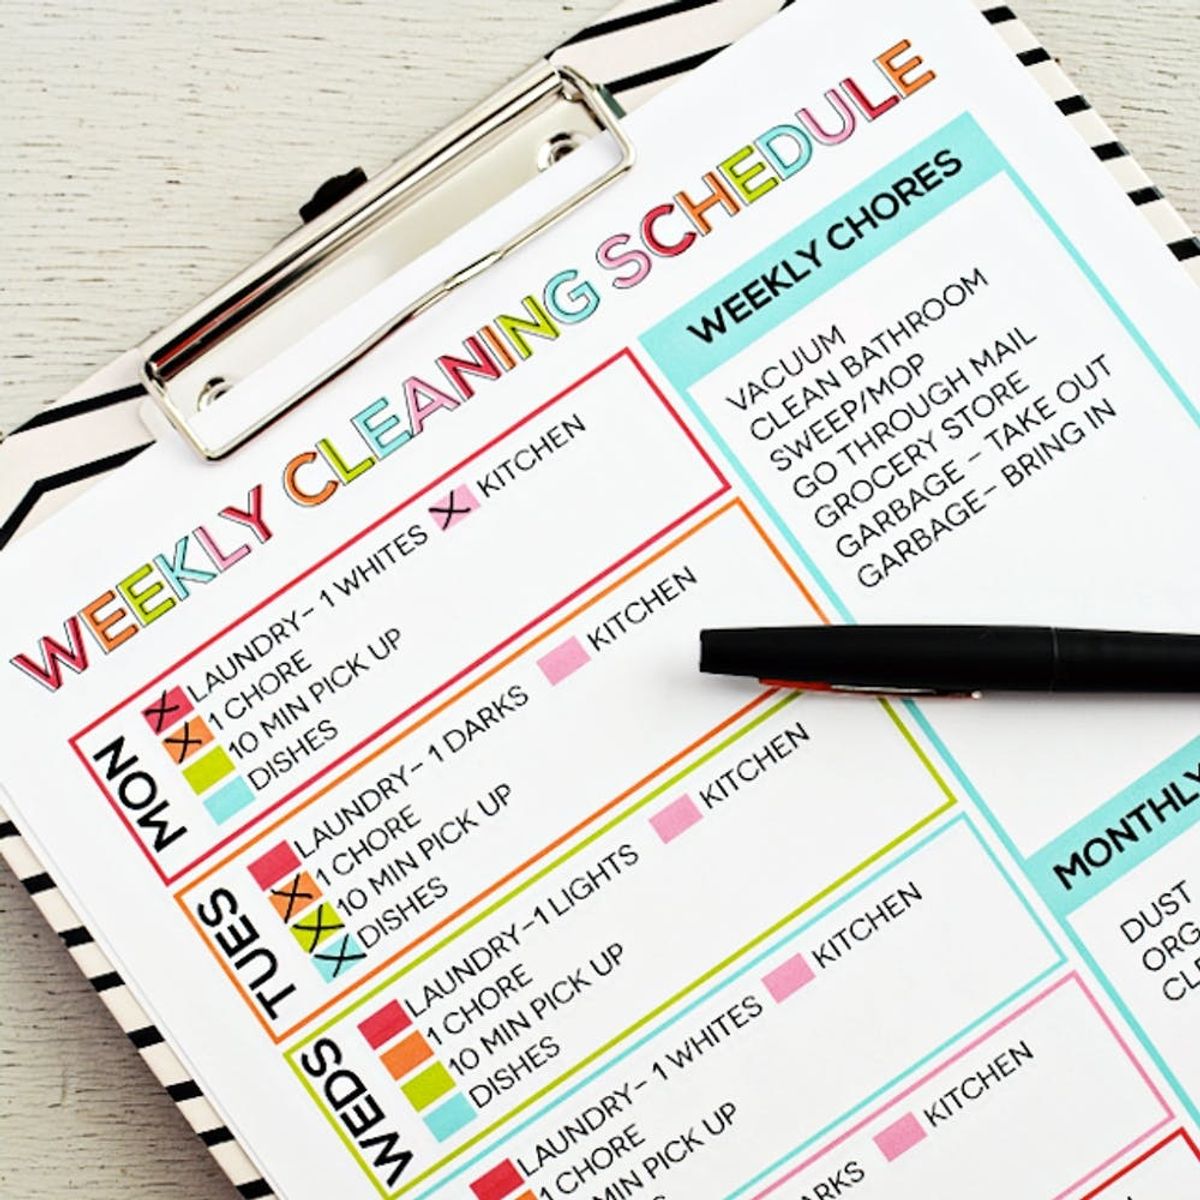 WEEKLY CLEANING SCHEDULE
MON
LAUNDRY- 1 WHITES
1 CHORE
10 MIN PICK UP
DISHES
KITCHEN
TUES
LAUNDRY- 1 DARKS
1 CHORE
10 MIN PICK UP
DISHES
KITCHEN
WEDS
LAUNDRY-1 LIGHTS
1 CHORE
10 MIN PICK UP
DISHES
KITCHEN
LAUNDRY- 1 WHITES
1 CHORE
MIN PICK UP
KITCHEN
KITCHEN
WEEKLY CHORES
VACUUM
CLEAN BATHROOM
SWEEP/MOP
GO THROUGH MAIL
GROCERY STORE
GARBAGE - TAKE OUT
GARBAGE- BRING IN
MONTHLY
DUST